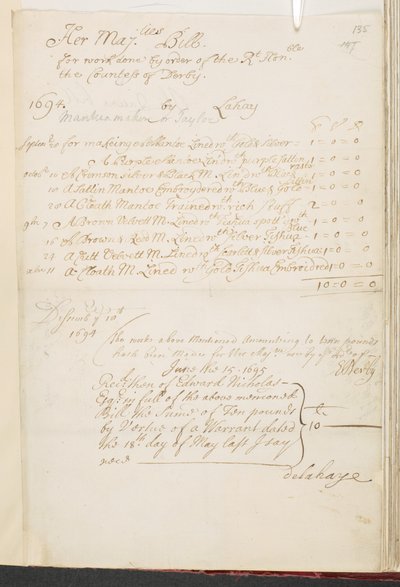 135
Her Maj:ties Bill.
for work done by order of the Rt Honble
the Countess of Derby.
1694. by Lahay
Mantua maker or Taylor
£ S D
20 for making a Mantoe Lined wth Gold & Silver 1=0=0
A Mantoe Lined wth purple Sattin 1=0=0
octobr 10 A Crimson Silver & Black M. Lined wth Black 1=0=0
10 A Sattin Mantoe Embroydered wth Blue & Gold 1=0=0
20 A Cloath Mantoe wth rich stuff 2=0=0
9br 7 A Brown Velvett M. Lined wth Tishua spott 1=0=0
16 A Brown & Red M. Lined wth Silver Tishua 1=0=0
24 A Velvett M. Lined wth & Silver Tishua 1=0=0
11 A Cloath M. Lined wth Gold Tishua Embroidred 1=0=0
10=0=0
Decemb ye 10th
1694
above Mentioned Amounting to tenn pounds
hath been Made for Her Majty
E Derby
June the 15. 1695
Recd. then of Edward Nicholas
Esqr. in full of the above mencon'd
Bill the Sume of Ten pounds
by Vertue of a Warrant dated
the 18th day of May last I say
recd
10
delahaye